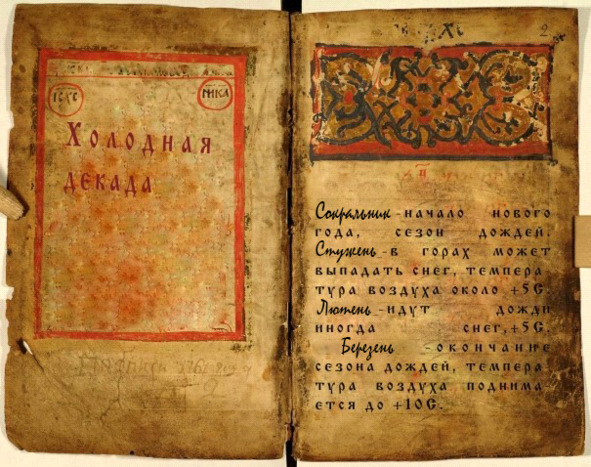 ІС ХС
НИКА
Холодная
декада
2
Сокральник - начало нового
года, сезон дождей.
Стужень - в горах может
выпадать снег, темпера-
тура воздуха около +5С.
Лютень - идут дожди
иногда снег,+5С.
Березень - окончание
сезона дождей, темпера-
тура воздуха поднима-
ется до +10С.